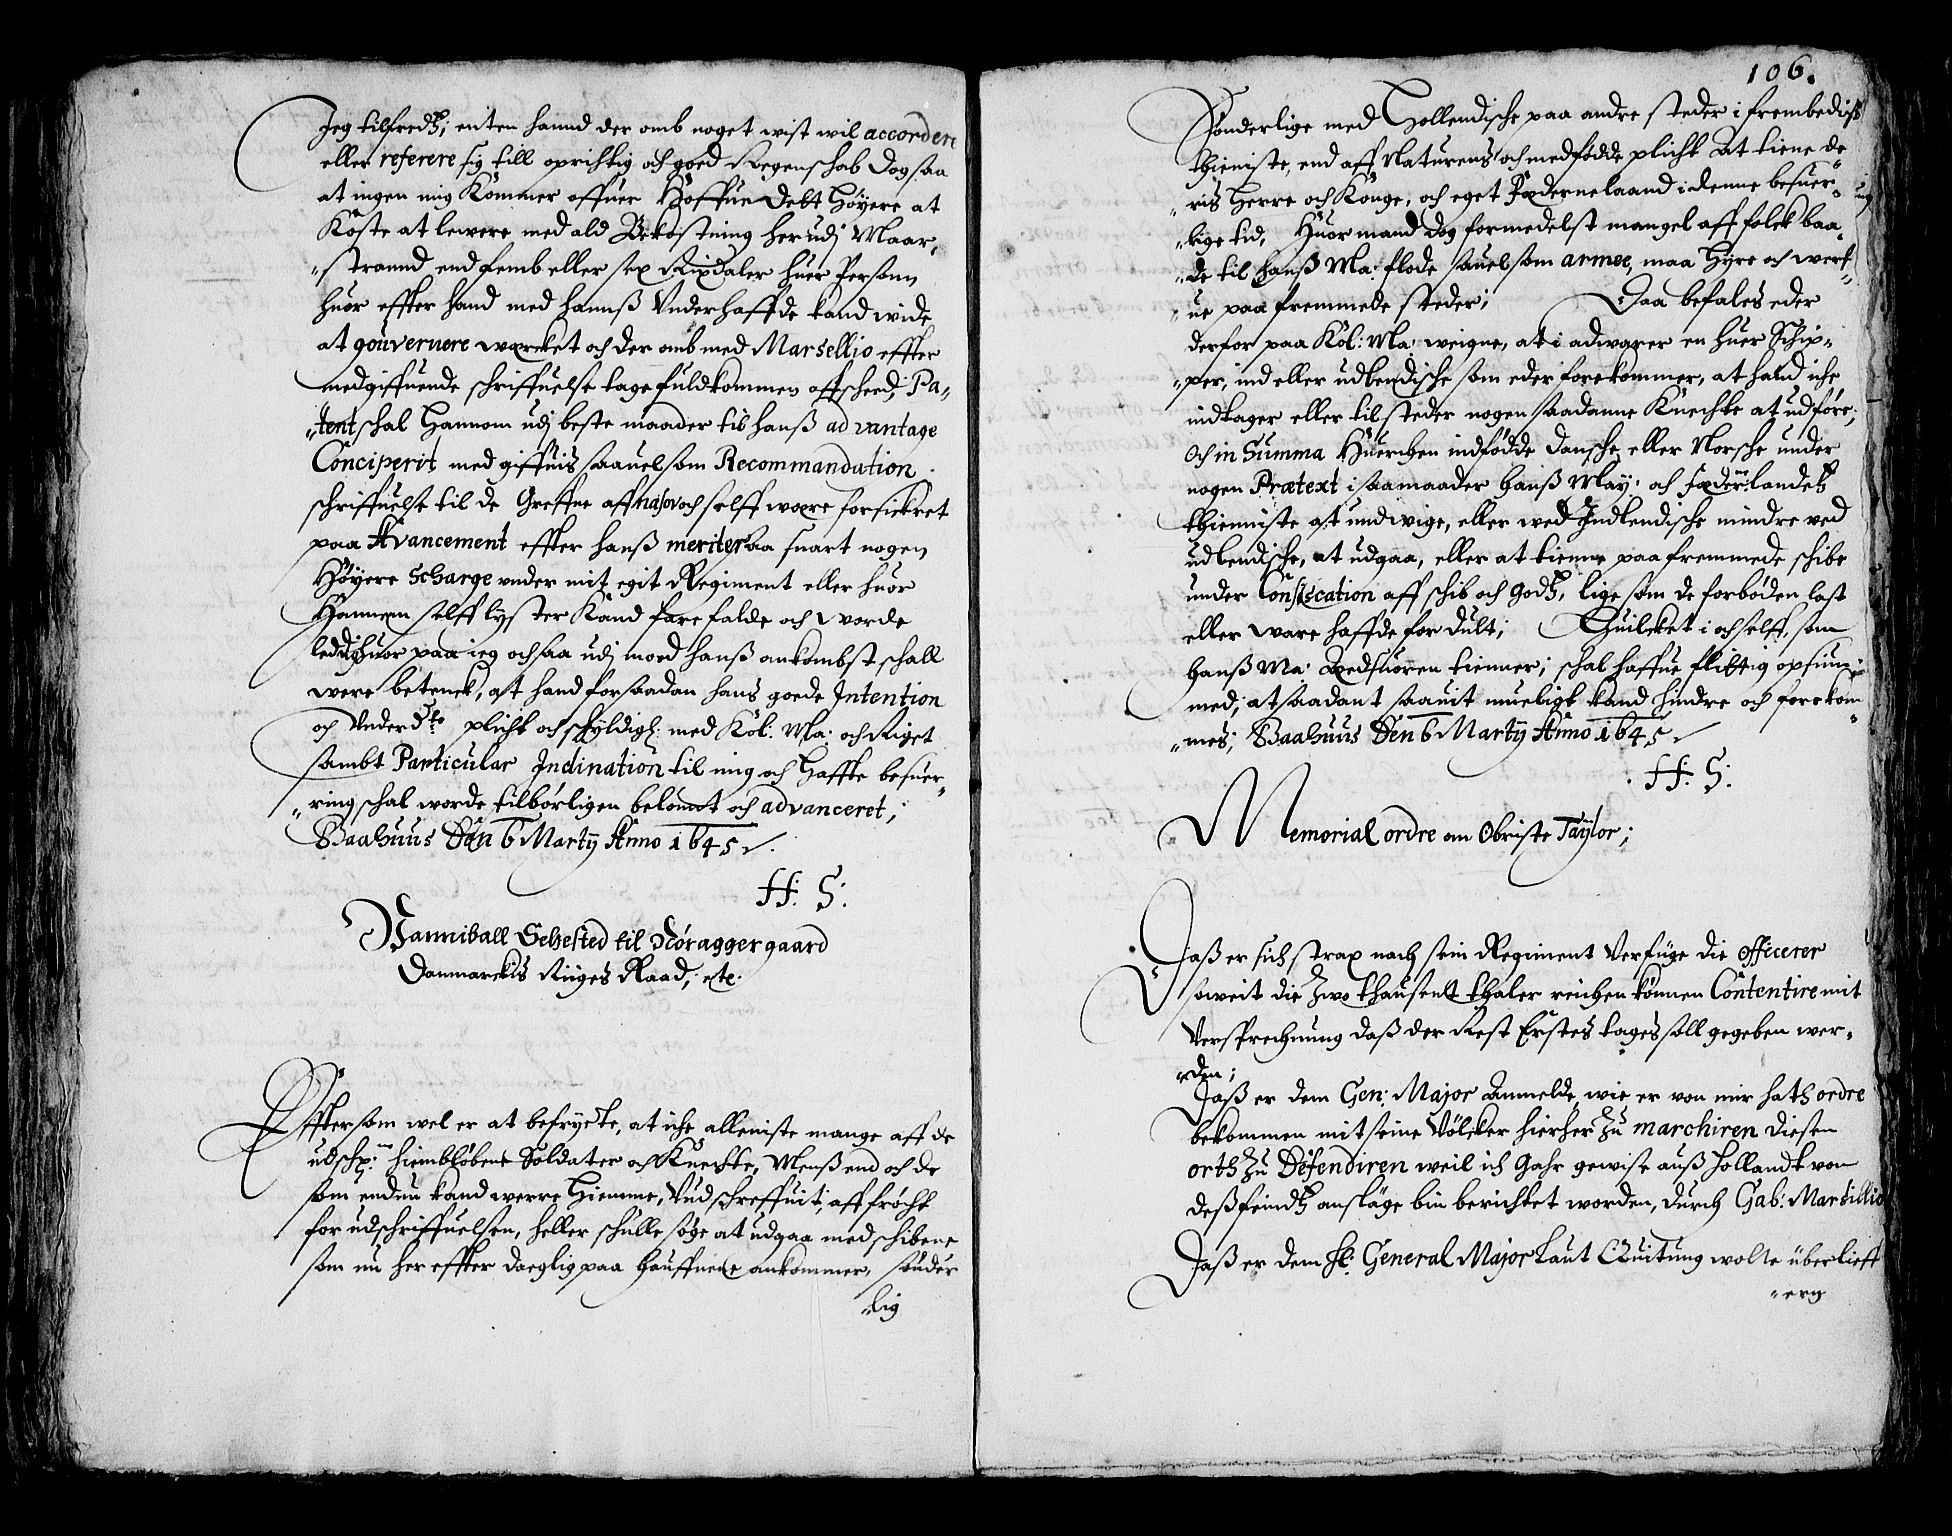 Jeg tilfredtz; enten hannd der omb noget wist wil accordere
eller referere sig till oprichtig och goed Regenschab dog saa
at ingen mig Kommer offuer Höffuedebt Höyere at
Koste at lewere med ald Bekostning her udj Maar„
„strannd end femb eller sex Rixdaler huer Persohn
huor effter hand med hannß Underhaffde kand wide
at gouvernere wercket och der omb med Marsellio effter
medgiffuende schriffuelse tage fuldkommen affscheed; Pa„
„tent schal Hannom udj beste maader til hanß advantage
Conciperit med giffuis saauelsom Recommandation
schriffuelse til de Greffue aff och selff wære forsickret
paa Avancement effter hanß meriter saa snart nogen
Höyere Scharge vnder mit egit Regiment eller huor
Hannem selff lyster Kand fare falde och worde
leddig huor paa ieg ochsaa udj moed hanß ankombst schall
were betenck, at hand for saadan hans goede Intention
och Underdte plicht och schyldigh: med Köl. Ma: och Riget
sambt Particular Inclination til mig och Haffte besuer„
„ring schal worde tilbörligen belönnt och advanceret;
Baahuus Den 6 Martij Anno 1645
H: S:
Hanniball Sehested til Nöraggergaard
Danmarckis Riiges Raad; etc.
Effter som wel er at befrycte, at iche alleniste mange aff de
udschr: hiembløbene Soldater och Knechte, Menß end och de
som endnu kand werre Hiemme, Udschreffuit; aff fröcht
for udschriffuelsen, heller schulle söge at udgaa med schibene
som nu her effter daeglig paa Hauffnene ankommer, sönder
„lig
106.
Sönderlige med Hollendische paa andre steder i frembedis
thieniste, end aff Naturens och medfödde plicht at tiene de
„ris Herre och Konge, och eget Fædernelaand i denne besuer„
„lige tid, Huor mand dog formedelst mangel aff folck baa„
„de til hanß Ma: flode sauelsom armee, maa Hyre och werf„
„ue paa fremmede steder; Daa befales eder
derfor paa Köl: Ma: weigne, at i adwarer en huer Schip„
„per, ind eller udlendische som eder forekommer, at hand iche
indtager eller tilsteder nogen saadanne Knechte at udföre;
Och in Summa Huerchen indfödde Dansche eller Norsche under
nogen Prætext i saamaader hanß May: och Fædernelandetz
thienniste at undwige, eller wed Indlendische mindre ved
udlendische, at udgaa, eller at tienne paa fremmede schibe
under Confiscation aff schib och Godtz, lige som de forböden last
eller ware haffde for dult; Huilcket i och selff, som
hanß Ma: Ædsuoren tienner; schal haffue flittig opsiun
med, at saadant saauit mueligt kand hindre och forekom„
„mes; Baahuus Den 6 Martij Anno 1645
H: S:
Memorial ordre om Obriste Taylor;
Daß er sich strax nach sein Regiment Verfüge die officerer
soweit die Zwo thausendt thaler reichen können Contentire mit
Versprechnung daß der Rest Erstes tages soll gegeben wer„
„den;
Daß er dem Gen: Major Anmelde, wie er von mir hath ordre
bekommen mit seine Völcker hierher zu marchiren diesen
orth zu Defendiren weil ich Gahr gewise auß Hollandt von
deß feindtz ansläge bin berichtet worden, durch Gab: Marsillio
Daß er dem H: General Major Laut Quitung wolte überlieff
„ern